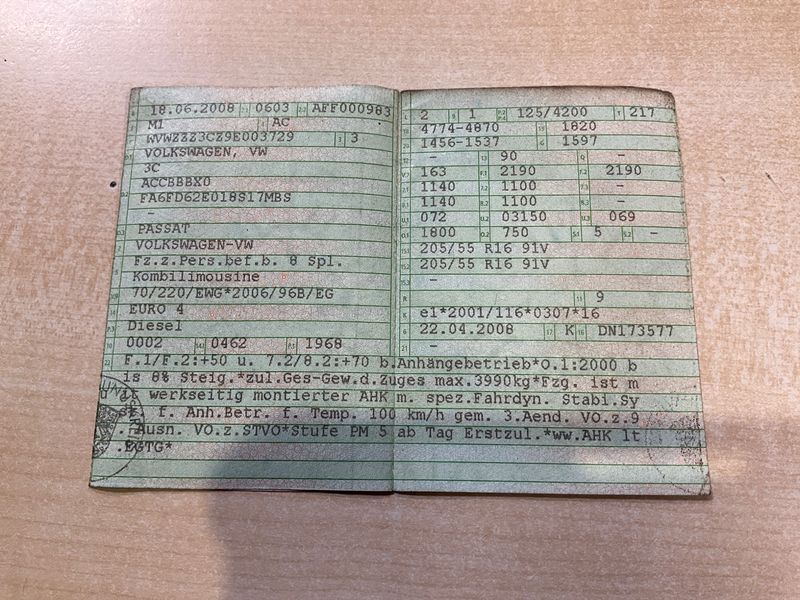 18.06.2008 0603 AFF000983
M1 AC
WVWZZZ3CZ9E003729 3
VOLKSWAGEN, VW
3C
ACCBBBX0
FA6FD62E018S17MBS
–
PASSAT
VOLKSWAGEN-VW
Fz.z.Pers.bef.b. 8 Spl.
Kombilimousine
70/220/EWG*2006/96B/EG
EURO 4
Diesel
0002 0462 1968
2 1 125/4200 217
4774-4870 1820
1456-1537 1597
– 90 –
163 2190 2190
1140 1100 –
1140 1100 –
072 03150 069
1800 750 5 –
205/55 R16 91V
205/55 R16 91V
–
9
e1*2001/116*0307*16
22.04.2008 K DN173577
–
F.1/F.2:+50 u. 7.2/8.2:+70 b.Anhängebetrieb*O.1:2000 b
is 8% Steig.*zul.Ges-Gew.d.Zuges max.3990kg*Fzg. ist m
it werkseitig montierter AHK m. spez.Fahrdyn. Stabi.Sy
st. f. Anh.Betr. f. Temp. 100 km/h gem. 3.Aend. VO.z.9
.Ausn. VO.z.STVO*Stufe PM 5 ab Tag Erstzul.*ww.AHK lt
.EGTG*